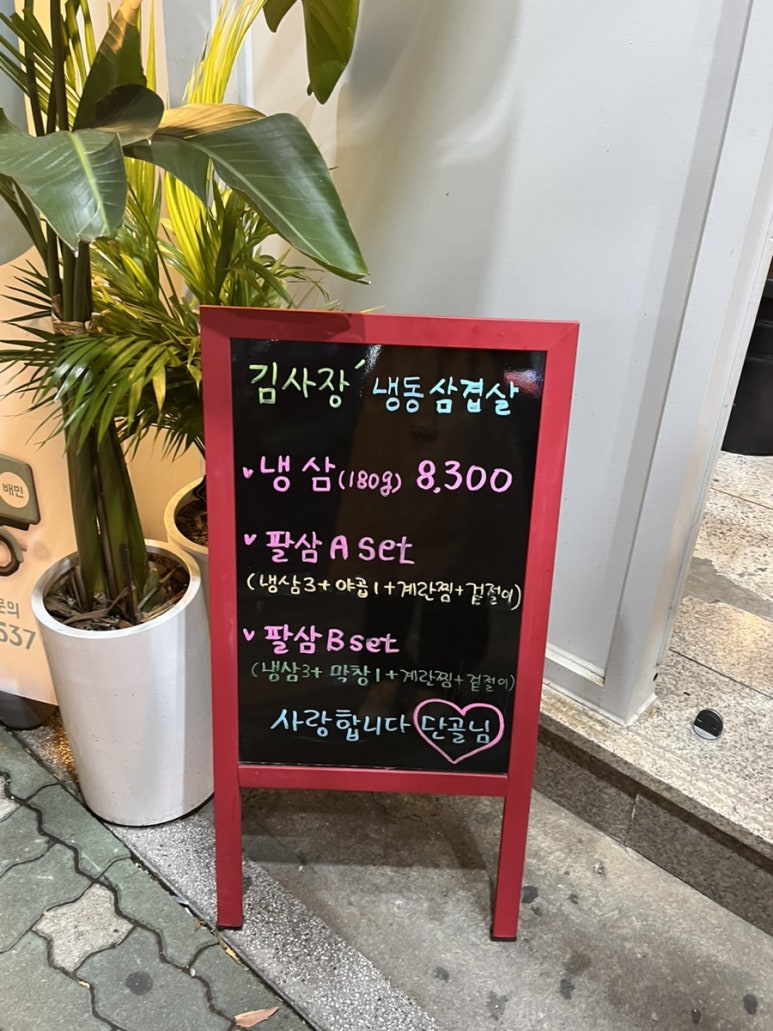 김사장' 냉동삼겹살
냉삼(180g) 8,300
팔삼 A set
(냉삼3+야곱1+계란찜+겉절이)
팔삼 B set
(냉삼3+막창1+계란찜+겉절이)
사랑합니다 단골님
배민
문의
537